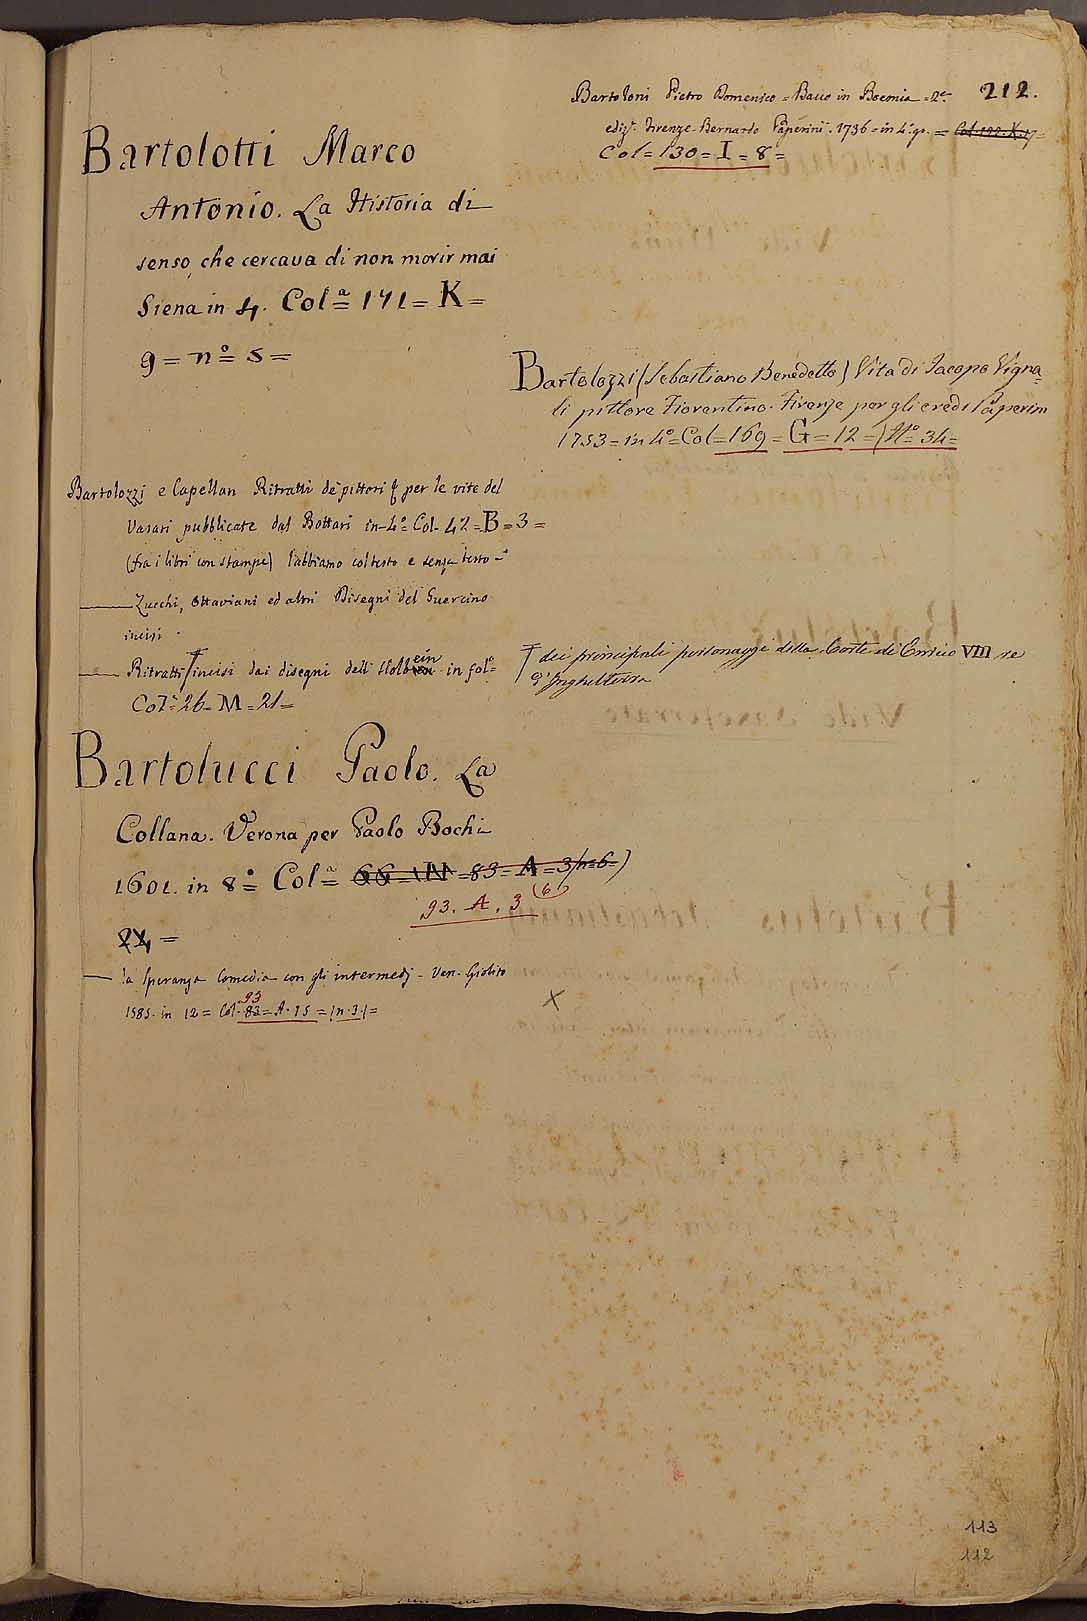 212.
Bartoloni Pietro Domenico = Bacco in Boemia = 2ª
ediz.e Firenze - Bernardo Paperini . 1736 = in 4.º gr. = Col. 122. X. 17=
Col = 130 = I = 8 =
Bartolotti Marco
Antonio. La Historia di
senso, che cercava di non morir mai
Siena in 4. Colª = 171 = K =
9 = nº = 5 =
Bartolozzi (Sebastiano Benedetto) Vita di Jacopo Vigna=
li pittore Fiorentino. Firenze per gli eredi Paperini
1753 = in 4º = Col = 169 = G = 12 = / Nº = 34 =
Bartolozzi e Capellan Ritratti de' pittori per le vite del
Vasari pubblicate dal Bottari in-4º = Col - 42 = B = 3 =
(fra i libri con stampe) l'abbiamo col testo e senza testo -
Zucchi, Ottaviani ed altri Disegni del Guercino
incisi .
Ritratti incisi dai disegni dell' Holbein in folº=
Colª = 26 = M = 21 =
dei principali personaggi della Corte di Enrico VIII re
d'Inghilterra
Bartolucci Paolo. La
Collana. Verona per Paolo Bochi
1601. in 8º = Colª = 66 = N = 83 = A = 3 / n = 6 = )
93. A. 3 (6)
24 =
la Speranza Comedia con gli intermedj - Ven. Giolito
93
1585. in 12 = Col. 83 = A. 15 = / n. 3. / =
X
113
112